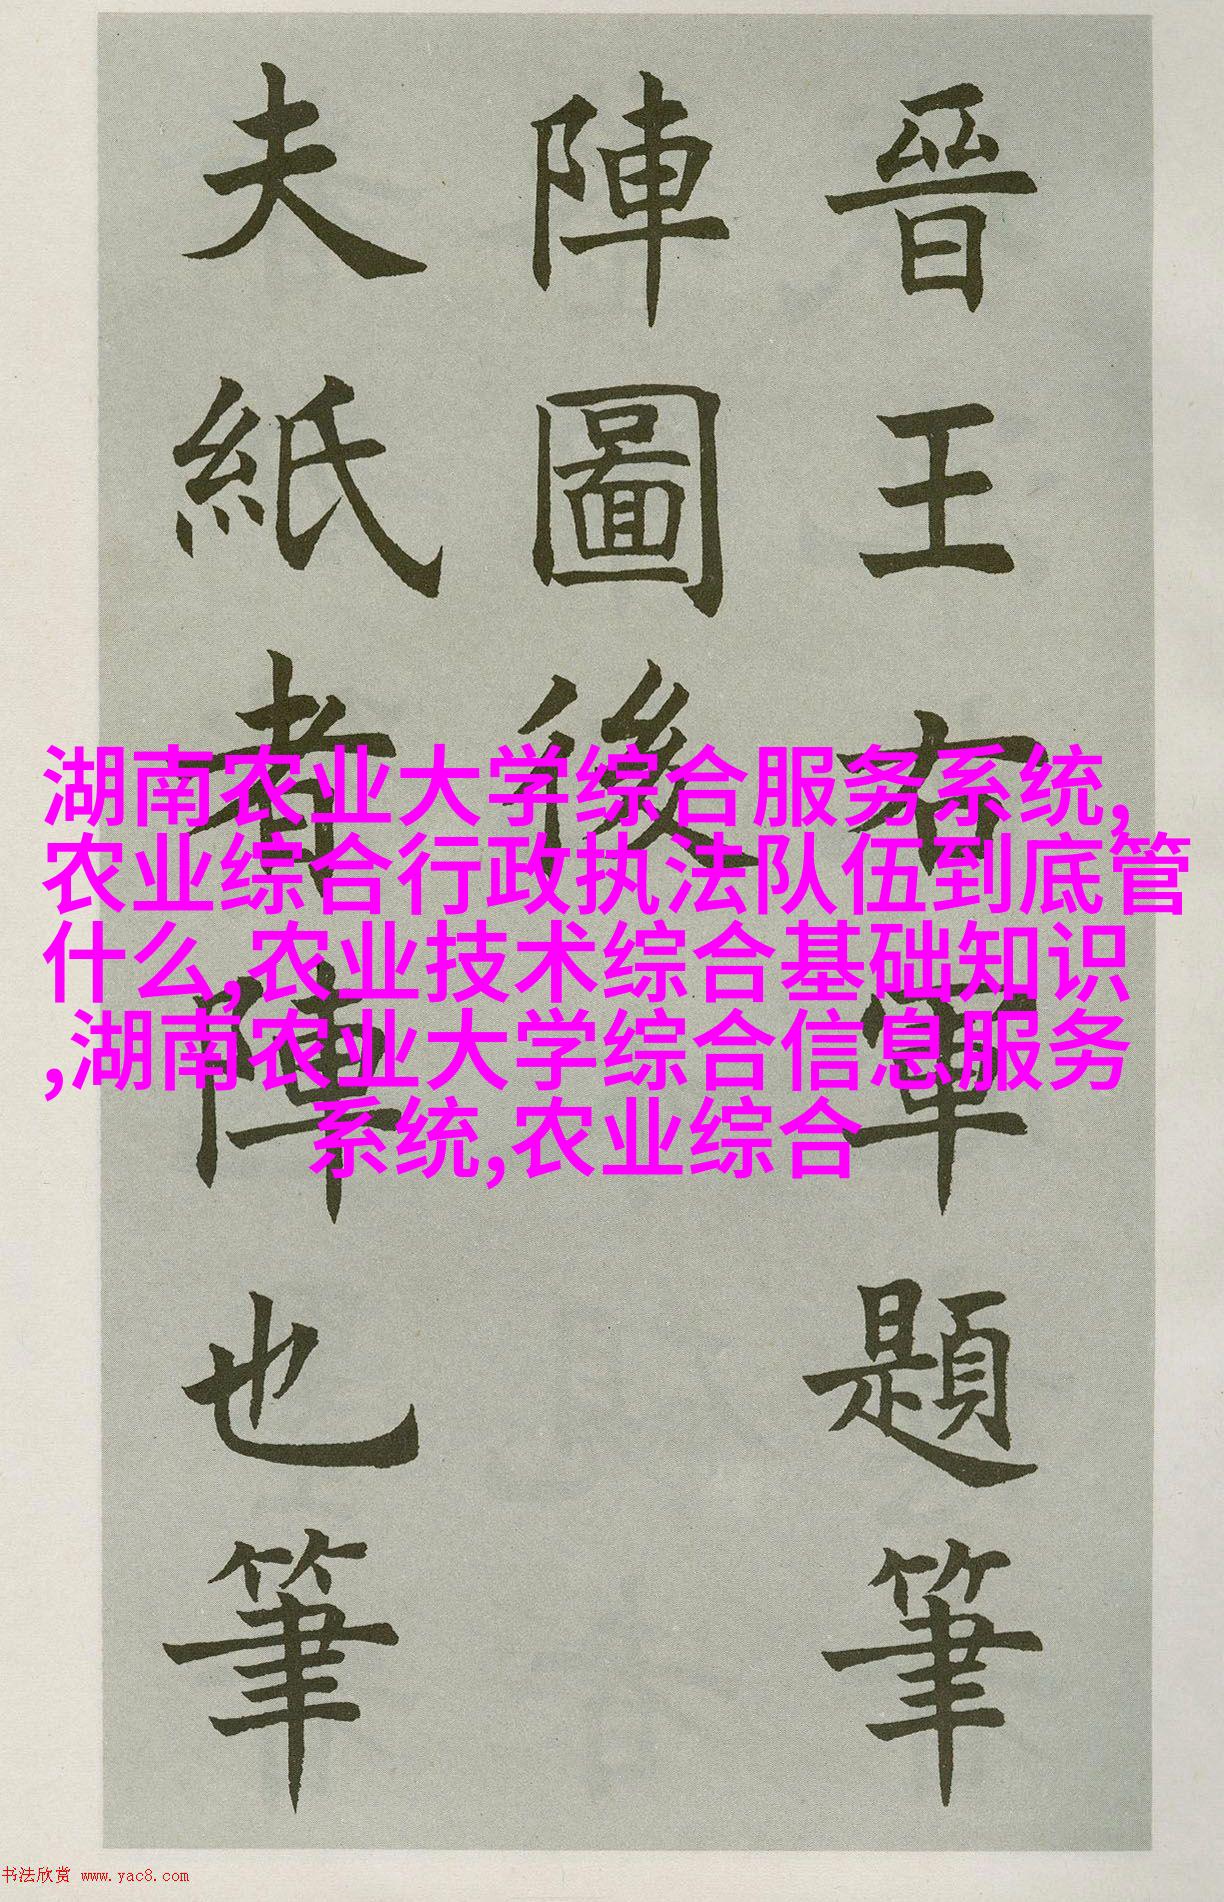 晉王右軍題筆
陣圖後
夫紙者陣也筆
湖南农业大学综合服务系统,
农业综合行政执法队伍到底管
什么,农业技术综合基础知识
,湖南农业大学综合信息服务
系统,农业综合
书法欣赏 www.yac8.com